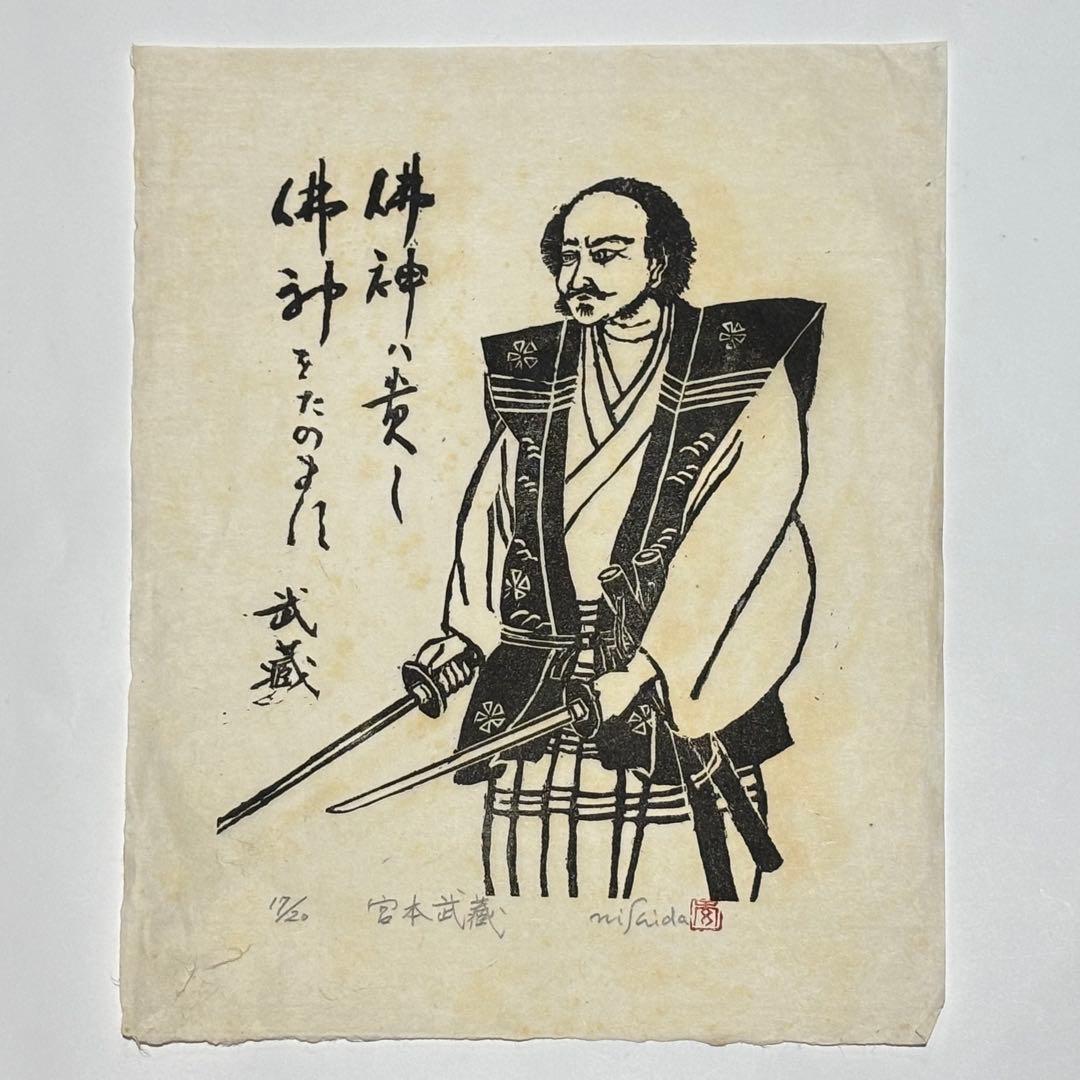 佛神ハ貴し
佛神をたのまず
武蔵
17/20
宮本武蔵
nishida